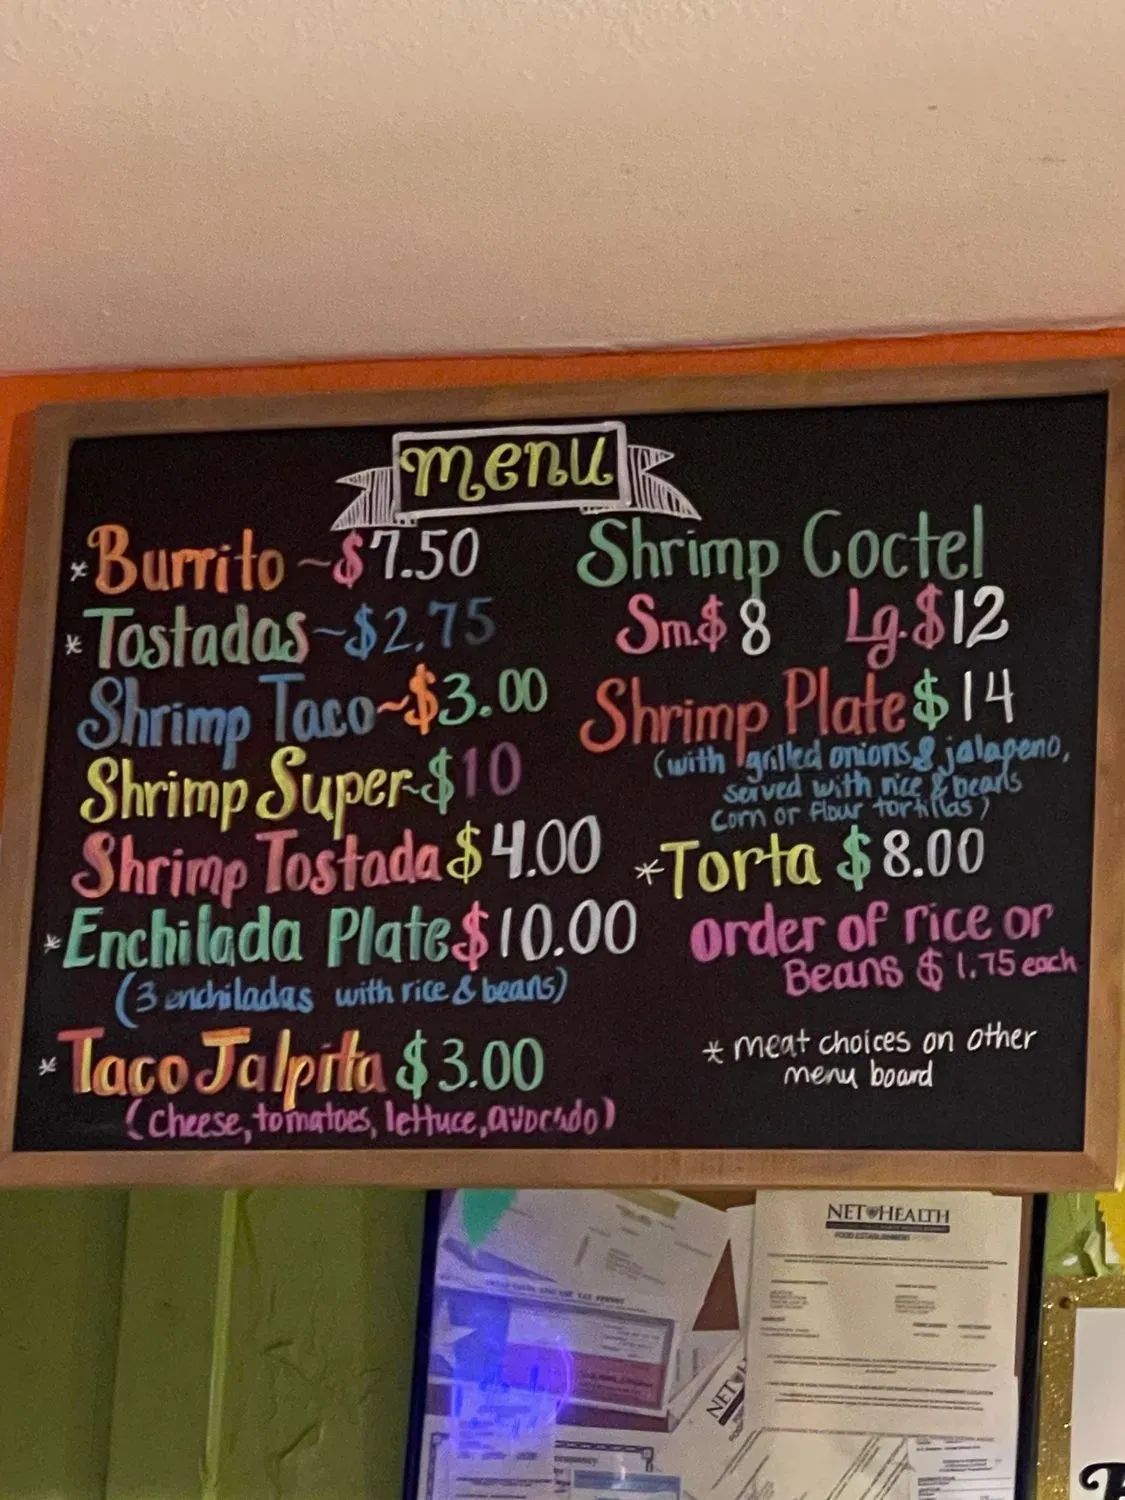 menu
* Burrito ~ $7.50
* Tostadas ~ $2.75
Shrimp Taco ~ $3.00
Shrimp Super ~ $10
Shrimp Tostada $4.00
* Enchilada Plate $10.00
(3 enchiladas with rice & beans)
* Taco Jalpita $3.00
(cheese, tomatoes, lettuce, avocado)
Shrimp Coctel
Sm. $8 Lg. $12
Shrimp Plate $14
(with grilled onions & jalapeno,
served with rice & beans
corn or flour tortillas)
* Torta $8.00
order of rice or
Beans $1.75 each
* meat choices on other
menu board
NET HEALTH
FOOD ESTABLISHMENT
NET